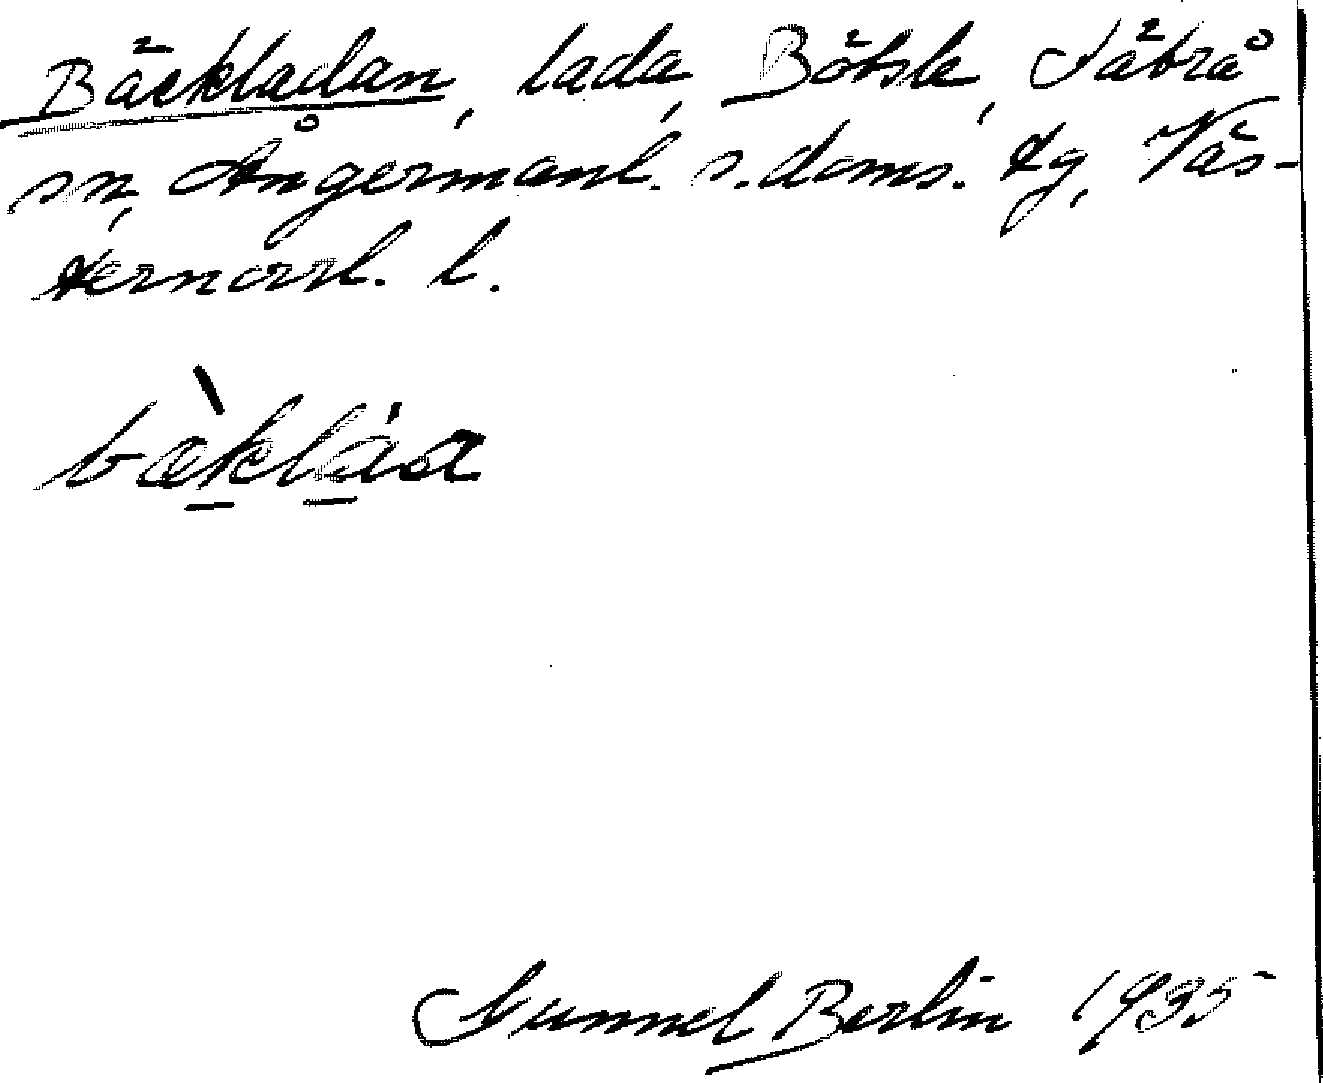 Bäckladan, lada, Bölsle, Säbrå
sn, Ångermanl. s. doms. tg, Väs-
ternorrl. l.
bæ̀klása
Gunnel Berlin 1935